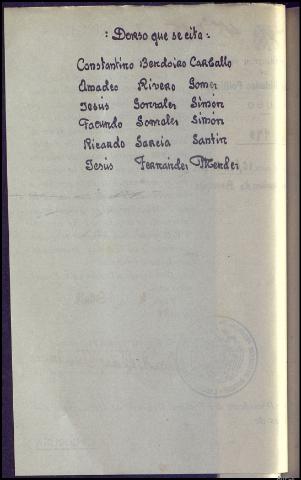 : Dorso que se cita :
Constantino Bendoiro Carballo
Amadeo Rivero Gomez
Jesús Gonzales Simón
Facundo Gonzales Simón
Ricardo García Santin
Jesús Fernández Mendez